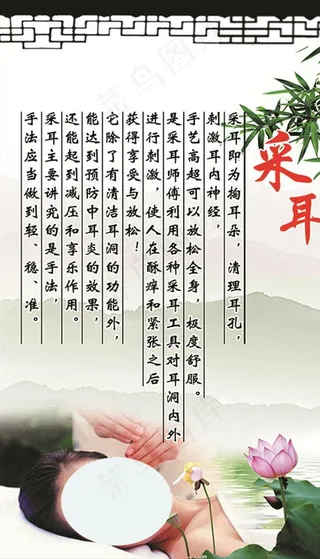 采耳
采耳即为掏耳朵，清理耳孔，
刺激耳内神经，
手艺高超可以放松全身，极度舒服。
是采耳师傅利用各种采耳工具对耳洞内外
进行刺激，使人在酥痒和紧张之后
获得享受与放松！
它除了有清洁耳洞的功能外，
能达到预防中耳炎的效果，
还能起到减压和享乐作用。
采耳主要讲究的是手法，
手法应当做到轻、稳、准。